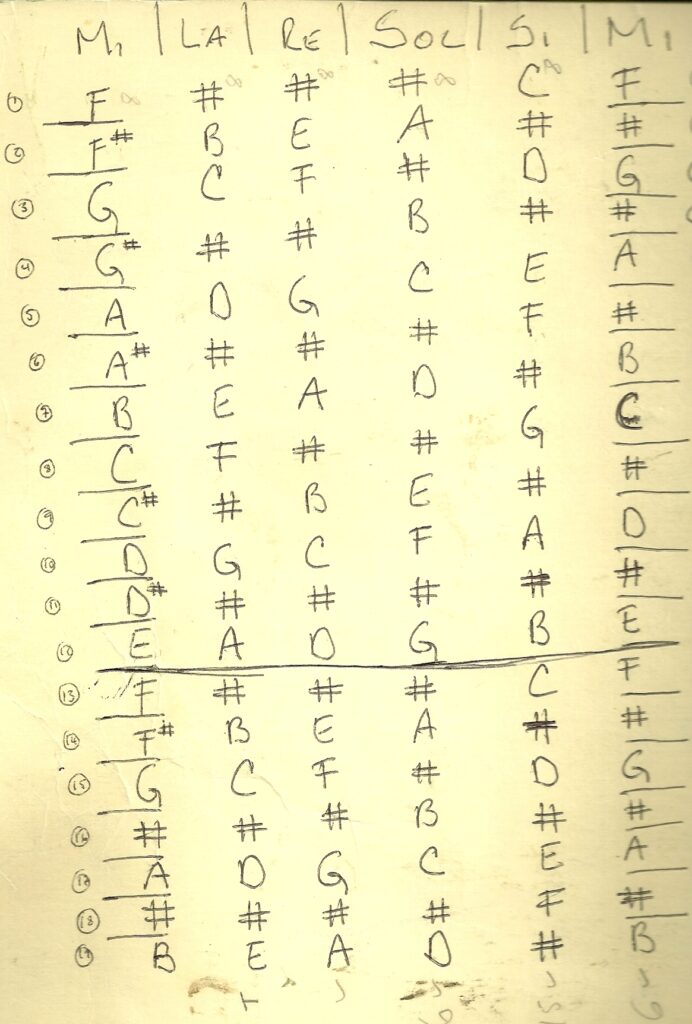 Mi | LA | RE | SOL | SI | Mi
1 F # # # C F
2 F# B E A # #
3 G C F # D G
4 G# # # B # #
5 A D G C E A
6 A# # # # F #
7 B E A D # B
8 C F # # G C
9 C# # B E # #
10 D G C F A D
11 D# # # # # #
12 E A D G B E
13 F # # # C F
14 F# B E A # #
15 G C F # D G
16 # # # B # #
17 A D G C E A
18 # # # # F #
19 B E A D # B